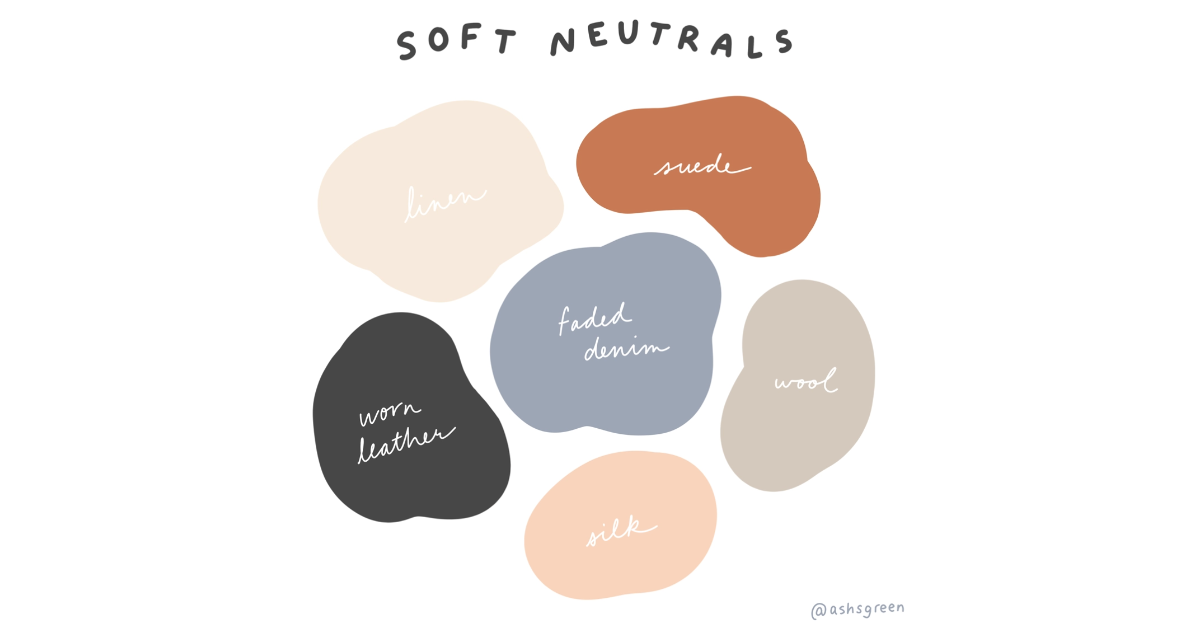 SOFT NEUTRALS
linen
suede
faded
denim
wool
worn
leather
silk
@ashsgreen